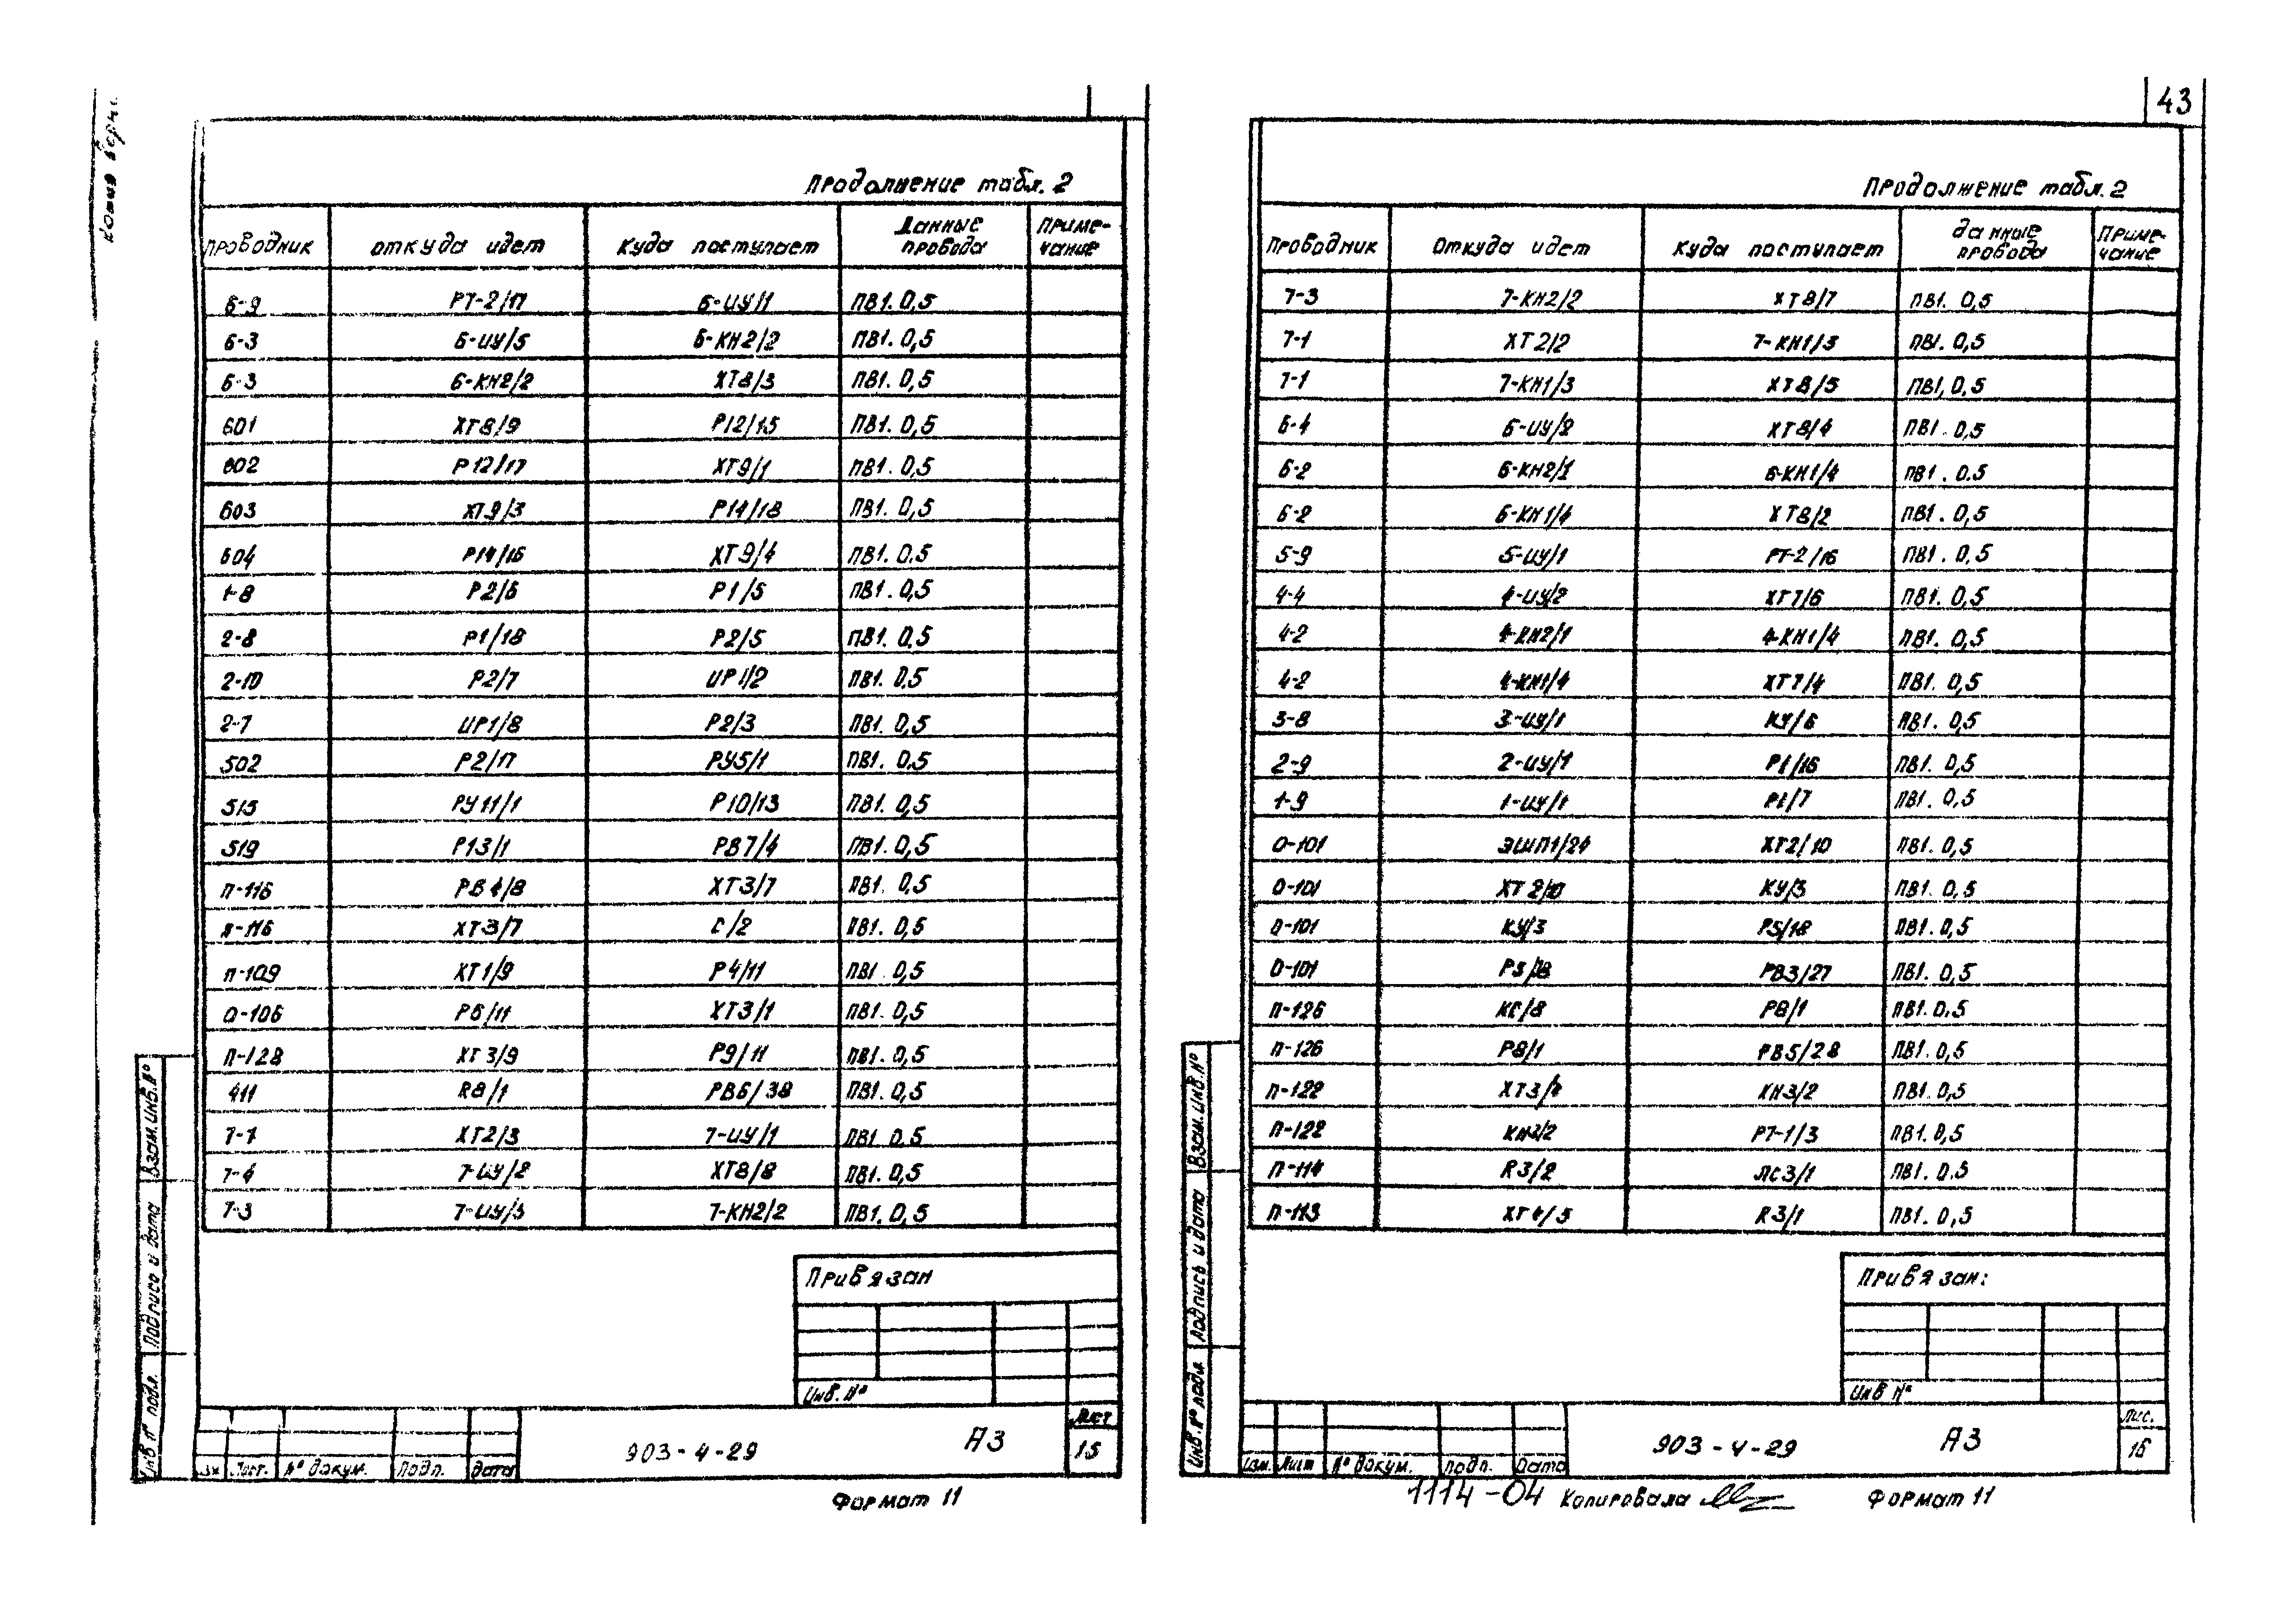 43
Продолнение табл. 2
Проводник откуда идет Куда поступает Данные провода Приме-чание
6-9 РТ-2/17 6-ИУ/1 ПВ1. 0,5
6-3 6-ИУ/5 6-КН2/2 ПВ1. 0,5
6-3 6-КН2/2 ХТ8/3 ПВ1. 0,5
601 ХТ8/9 Р12/15 ПВ1. 0,5
602 Р12/17 ХТ9/1 ПВ1. 0,5
603 ХТ9/3 Р14/18 ПВ1. 0,5
604 Р14/16 ХТ9/4 ПВ1. 0.5
1-8 Р2/6 Р1/5 ПВ1. 0,5
2-8 Р1/18 Р2/5 ПВ1. 0,5
2-10 Р2/7 ИР1/2 ПВ1. 0.5
2-7 ИР1/8 Р2/3 ПВ1. 0,5
502 Р2/17 РУ5/1 ПВ1. 0.5
515 РУ11/1 Р10/13 ПВ1. 0,5
519 Р13/1 РВ7/4 ПВ1. 0,5
П-116 РВ4/8 ХТ3/7 ПВ1. 0,5
П-116 ХТ3/7 С/2 ПВ1. 0,5
П-109 ХТ1/9 Р4/11 ПВ1 0,5
0-106 Р6/11 ХТ3/1 ПВ1. 0,5
П-128 ХТ3/9 Р9/11 ПВ1. 0,5
411 R8/1 РВ6/38 ПВ1. 0,5
7-1 ХТ2/3 7-ИУ/1 ПВ1 0,5
7-4 7-ИУ/2 ХТ8/8 ПВ1. 0,5
7-3 7-ИУ/5 7-КН2/2 ПВ1. 0,5
Привязан
Инв. №
Лист
903-4-29 А3 15
Лист. № докум. Подп. Дата
Формат 11
Взам. инв. №
Подпись и дата
Инв № подл.
Продолжение табл. 2
Проводник Откуда идет Куда поступает Данные провода Приме-чание
7-3 7-КН2/2 ХТ8/7 ПВ1. 0,5
7-1 ХТ2/2 7-КН1/3 ПВ1. 0,5
7-1 7-КН1/3 ХТ8/5 ПВ1, 0,5
6-4 6-ИУ/2 ХТ8/4 ПВ1. 0,5
6-2 6-КН2/1 6-КН1/4 ПВ1. 0.5
6-2 6-КН1/4 ХТ8/2 ПВ1. 0,5
5-9 5-ИУ/1 РТ-2/16 ПВ1. 0,5
4-4 4-ИУ/2 ХТ7/6 ПВ1. 0,5
4-2 4-КН2/1 4-КН1/4 ПВ1. 0,5
4-2 4-КН1/4 ХТ7/4 ПВ1. 0,5
3-8 3-ИУ/1 КУ/6 ПВ1. 0,5
2-9 2-ИУ/1 Р1/16 ПВ1. 0,5
1-9 1-ИУ/1 Р1/7 ПВ1. 0,5
0-101 ЭШП1/24 ХТ2/10 ПВ1. 0,5
0-101 ХТ2/10 КУ/3 ПВ1. 0,5
0-101 КУ/3 Р5/18 ПВ1. 0,5
0-101 Р5/18 РВ3/27 ПВ1. 0,5
П-126 КС/8 Р8/1 ПВ1. 0,5
П-126 Р8/1 РВ5/28 ПВ1. 0,5
П-122 ХТ3/4 КН3/2 ПВ1. 0,5
П-122 КН3/2 РТ-1/3 ПВ1. 0,5
П-114 R3/2 ЛС3/1 ПВ1. 0.5
П-113 ХТ4/5 R3/1 ПВ1. 0,5
Привязан:
Инв №
Лис.
903-4-29 А3 16
Изм. Лист № докум. Подп. Дата
1114-04 Копировала Формат 11
Взам. инв. №
Подпись и дата
Инв. № подл